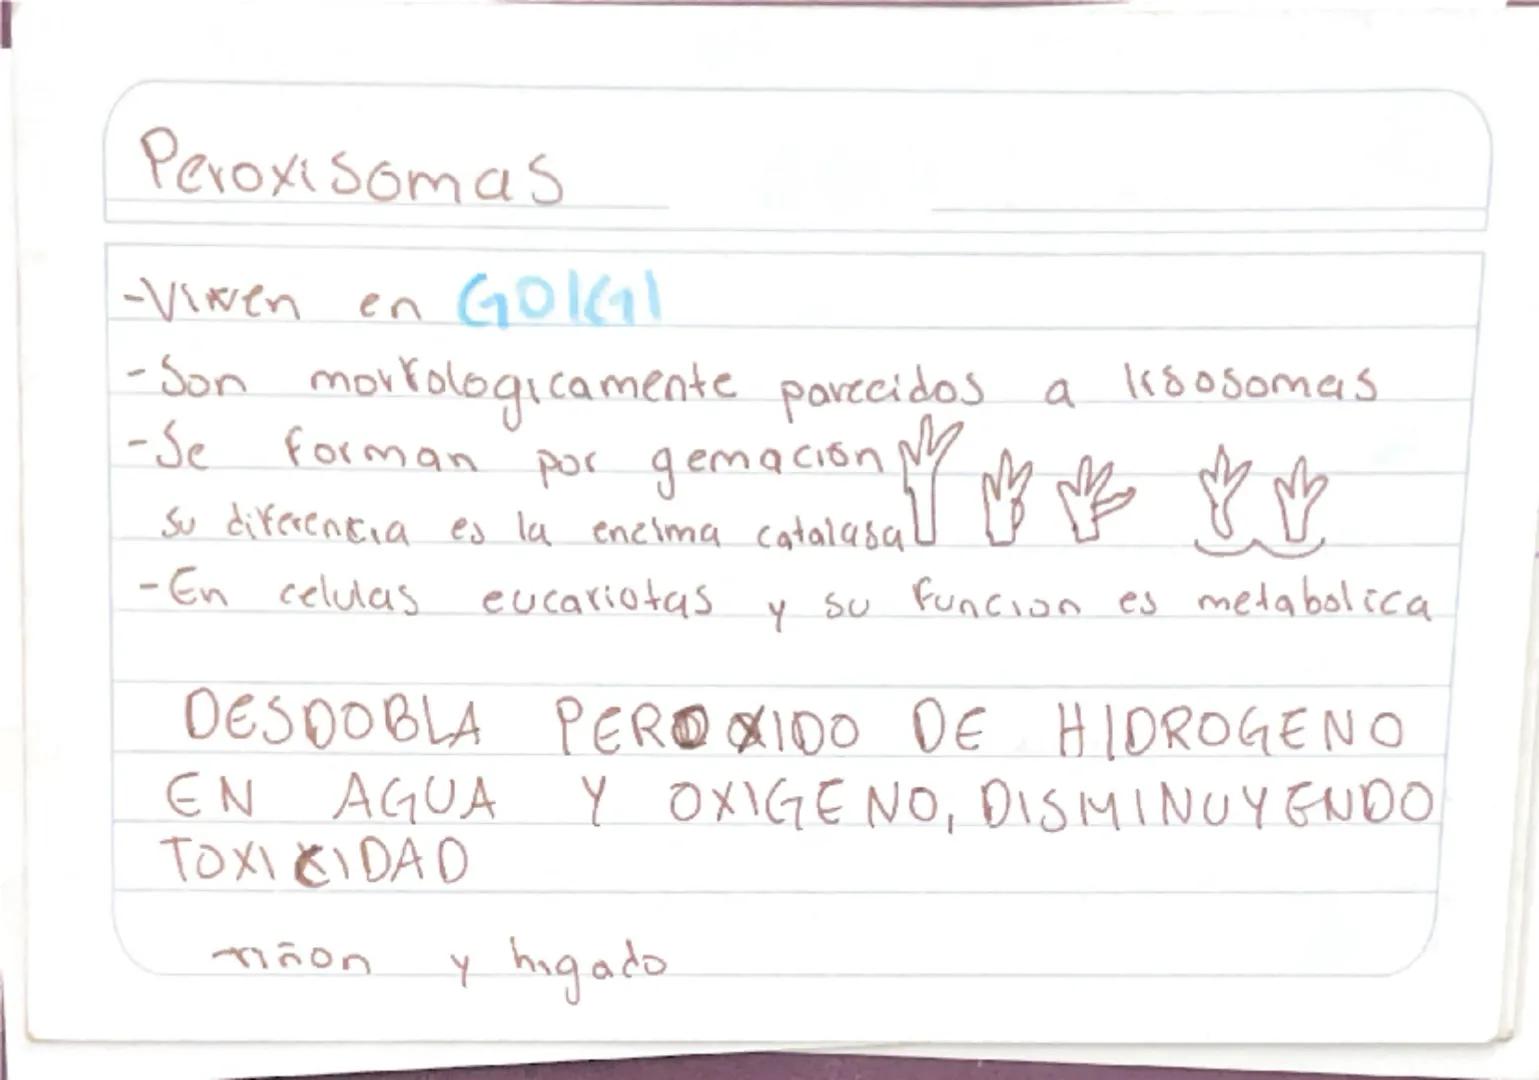 Peroxisomas
-Viven en GOlGI
-Son morfologicamente parecidos a lisosomas
-Se forman por gemación
su diferencia es la enzima catalasa
-En celulas eucariotas y su funcion es metabolica
DESDOBLA PEROXIDO DE HIDROGENO
EN AGUA Y OXIGENO, DISMINUYENDO
TOXICIDAD
riñon y higado